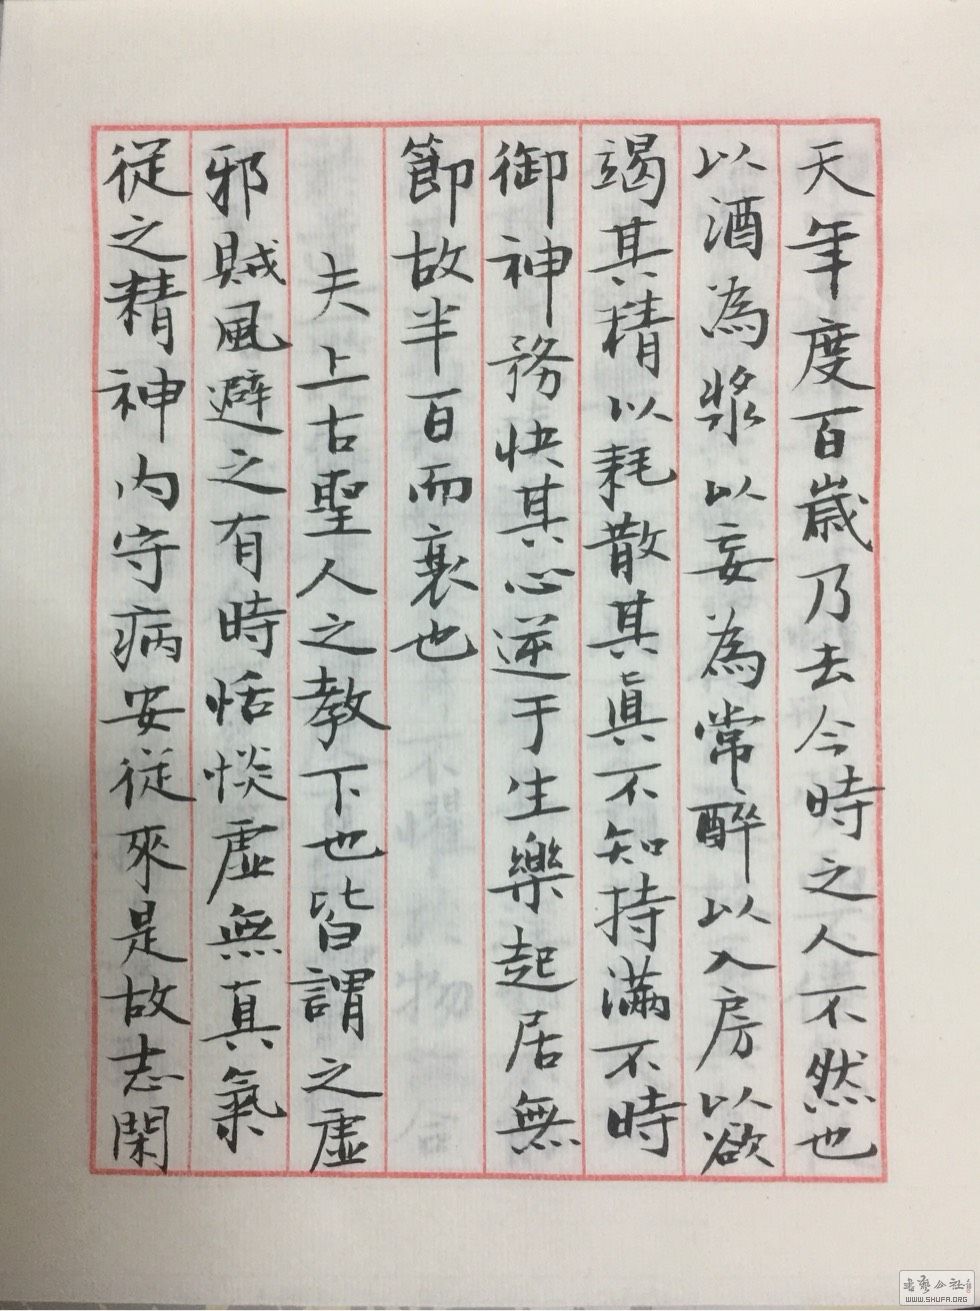 天年度百歲乃去今時之人不然也
以酒為漿以妄為常醉以入房以欲
竭其精以耗散其眞不知持滿不時
御神務快其心逆于生樂起居無
節故半百而衰也
夫上古聖人之教下也皆謂之虛
邪賊風避之有時恬惔虛無真氣
從之精神內守病安從來是故志閑
WWW.SHUFA.ORG